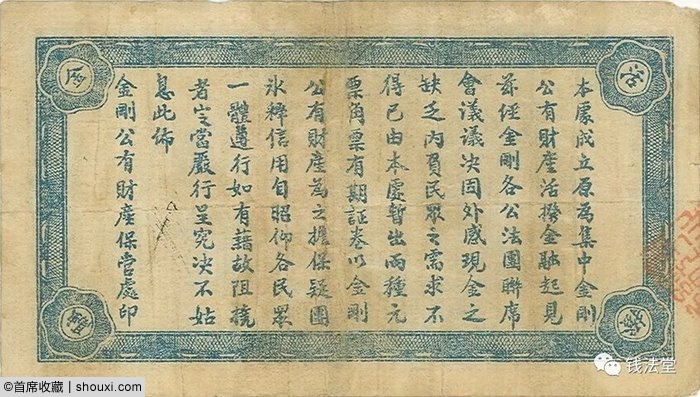 本處成立原為集中金剛
公有財産活撥金融起見
茲經金剛各公法團聯席
會議議決因外感現金之
缺乏內負民眾之需求不
得已由本處暫出兩種元
票角票有期証卷以金剛
公有財產為之擔保疑團
氷釋信用自昭仰各民眾
一體遵行如有藉故阻撓
者定當嚴行呈究决不姑
息此佈
金剛公有財產保管處印
活
金
融
钱法堂
©首席收藏 | shouxi.com